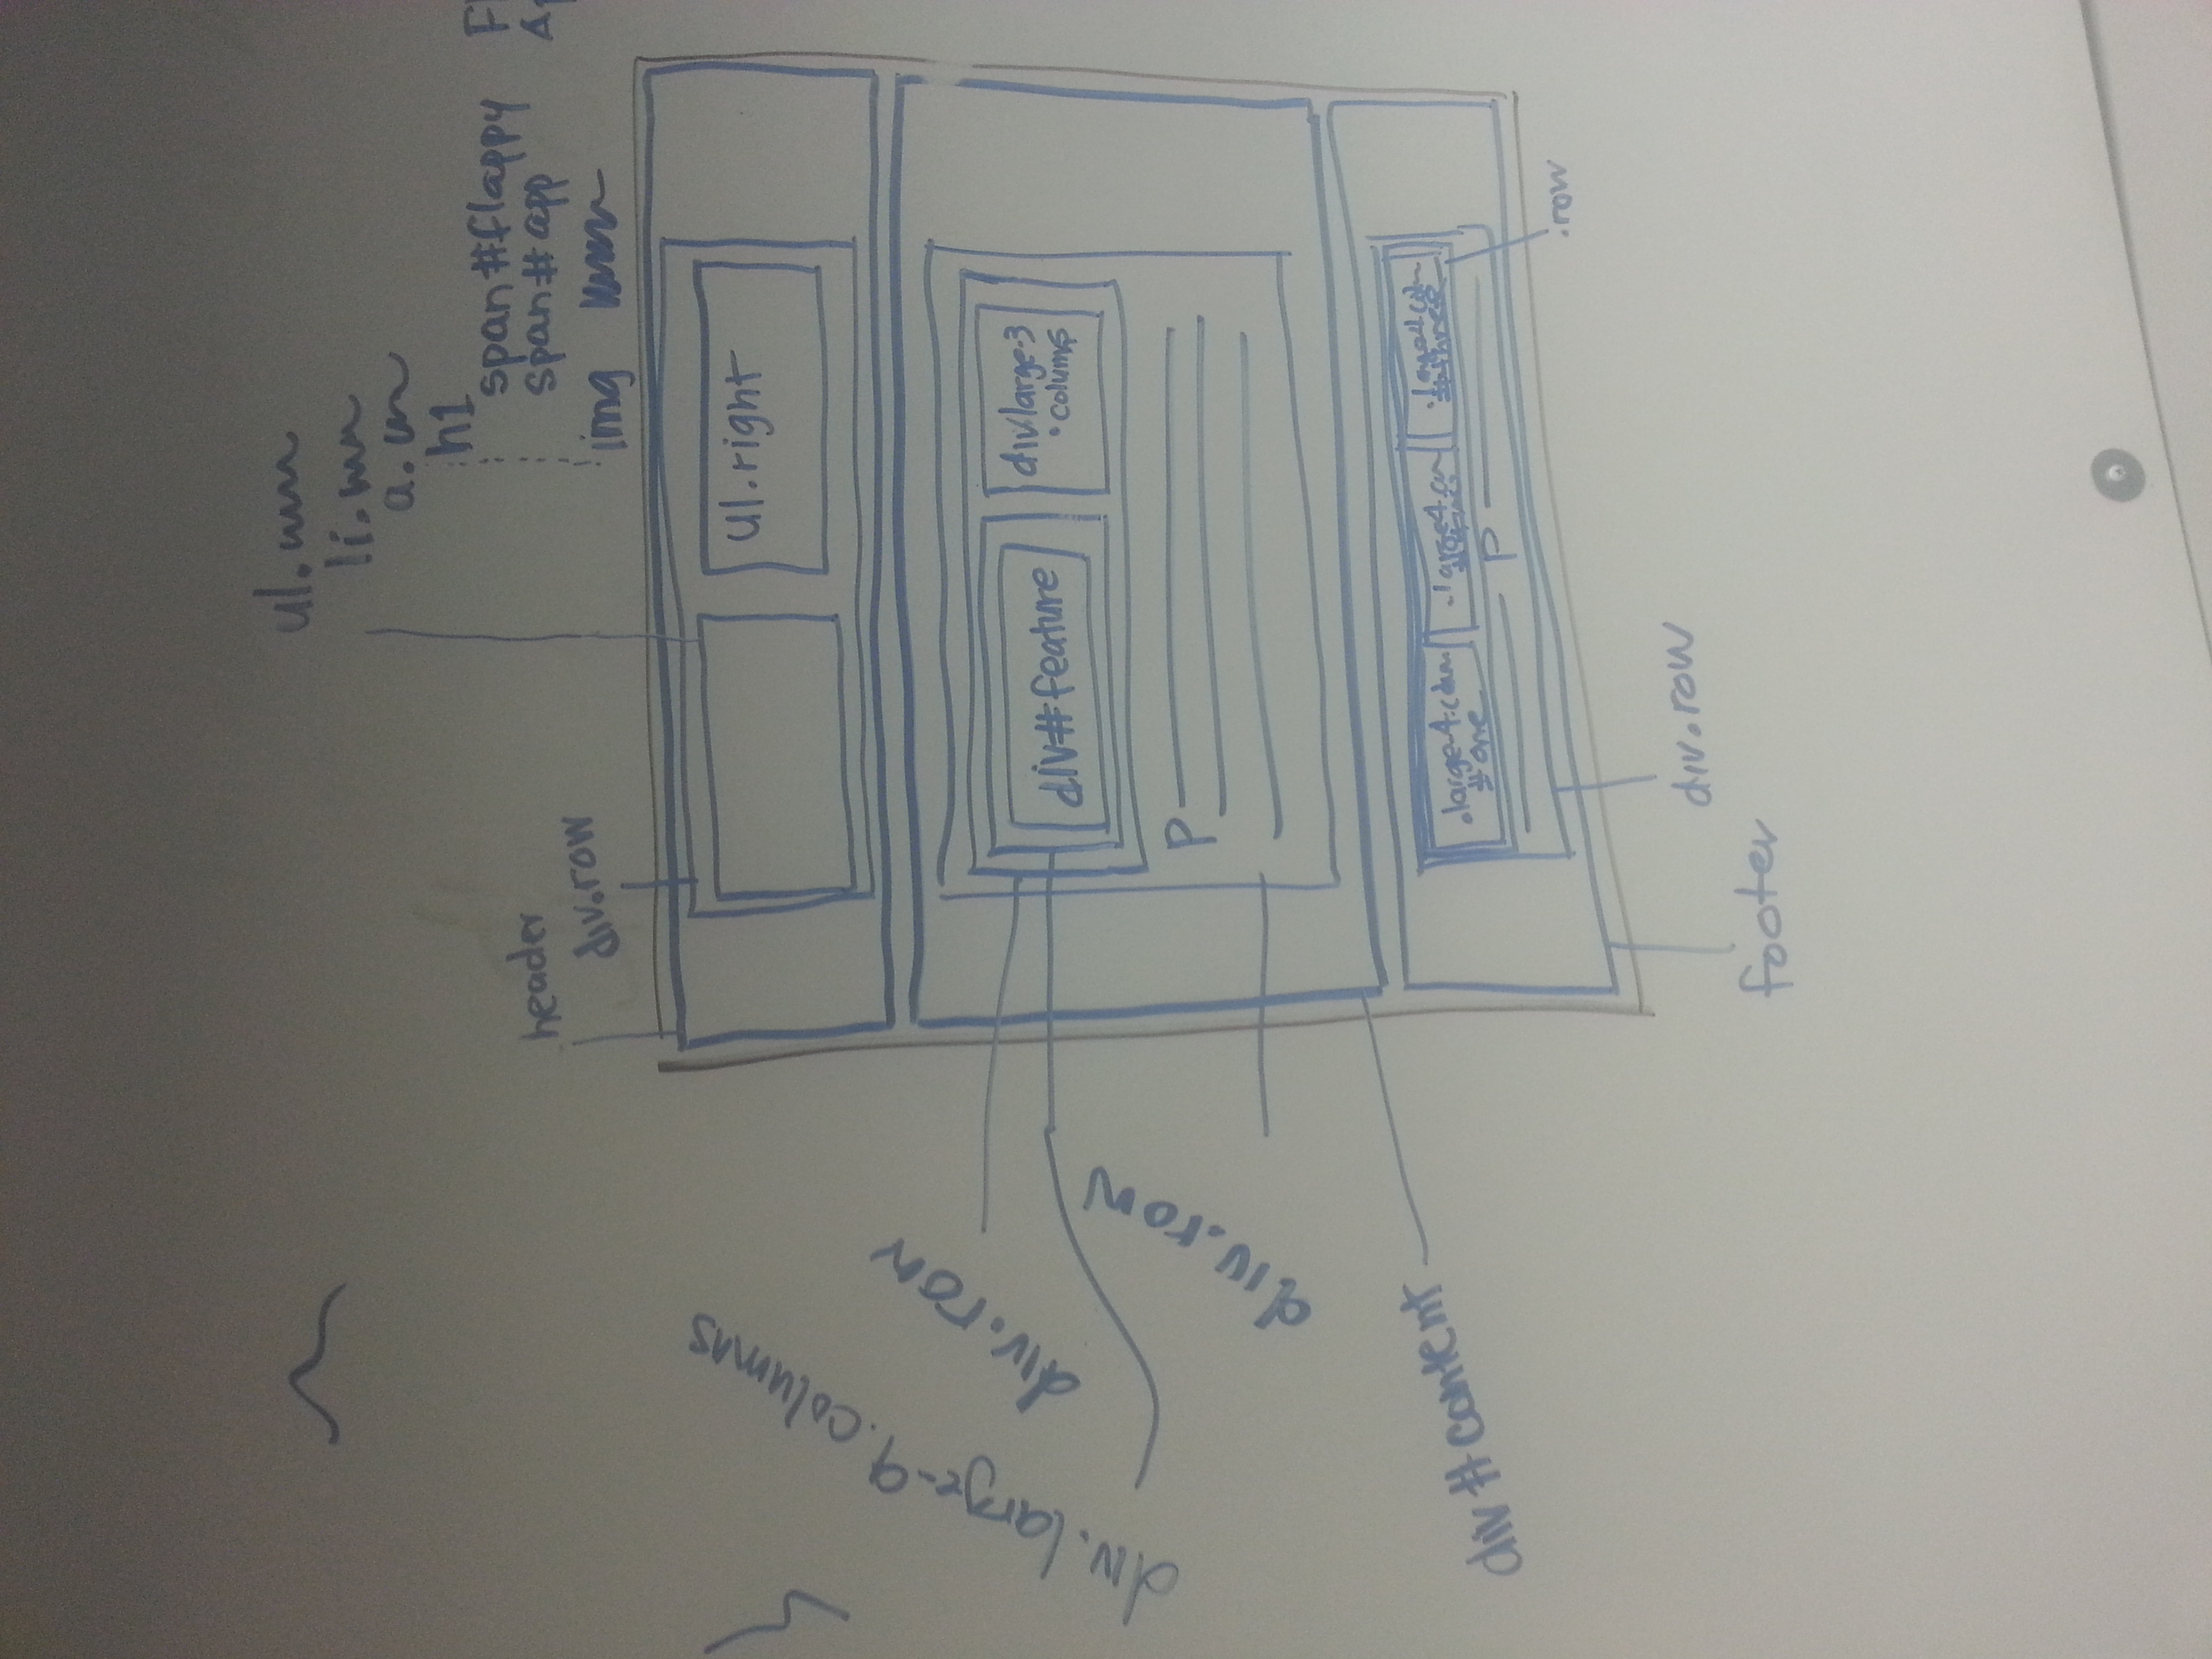 ul.
li.
a.
h1
span#flappy Fl
span#app Ap
img
header
div.row
ul.right
div.large-9.columns
div.row
div#feature
div.large-3
.colums
div.row
P
div#content
.large-4.colum
#one
.large4.
.large4.colum
#three
P
.row
div.row
footer